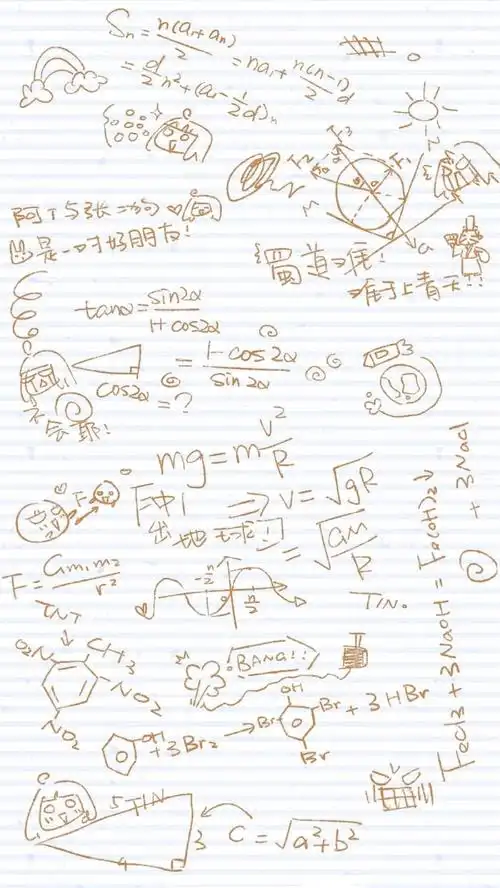 Sn = n(a₁+an)/2 = na₁ + n(n-1)/2 d
= d/2 n² + (a₁ - 1/2 d)n
是一对好朋友!
蜀道之难!
难于上青天!!
tanα = sin2α/1+cos2α
= 1-cos2α/sin2α
cos2α = ?
不会耶!
mg = m V²/R
⇒ V = √gR
= √GM/R
出地球!
F
F = Gm₁m₂/r²
-π/2
π/2
TNT
TIN.
O₂N
CH₃
NO₂
NO₂
BANG!!
OH + 3Br₂ → OH Br Br Br + 3HBr
FeCl3 + 3NaOH = Fe(OH)₂↓ + 3NaCl
5 TIN
3
4
C = √a²+b²